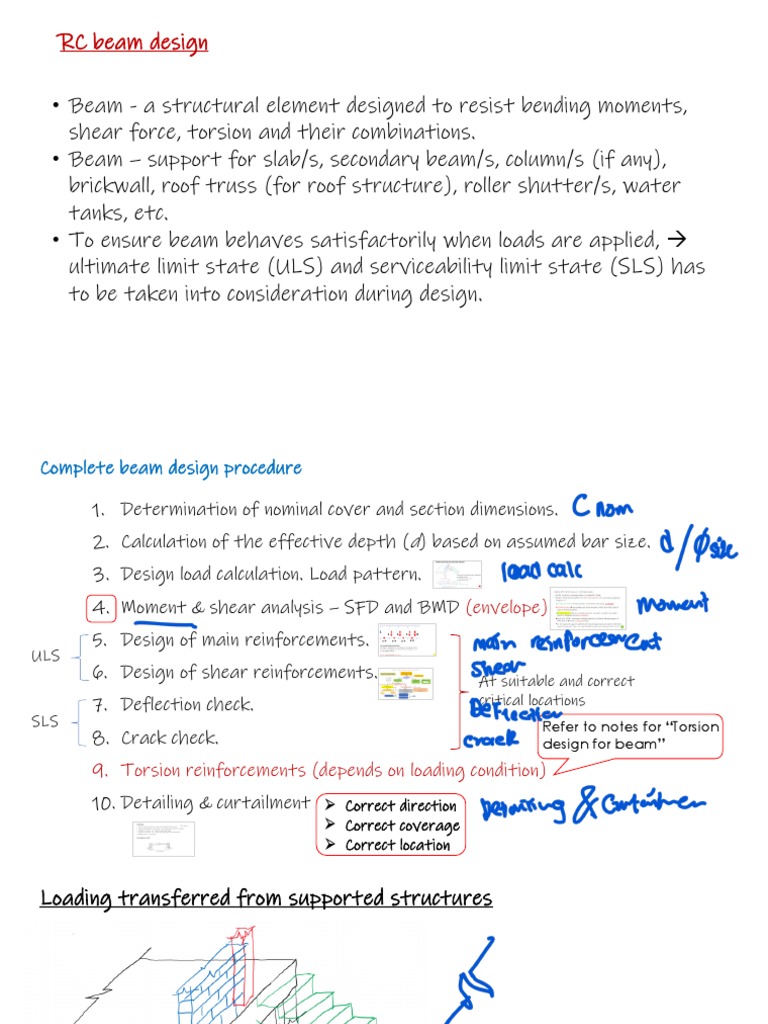 RC beam design
• Beam - a structural element designed to resist bending moments,
shear force, torsion and their combinations.
• Beam – support for slab/s, secondary beam/s, column/s (if any),
brickwall, roof truss (for roof structure), roller shutter/s, water
tanks, etc.
• To ensure beam behaves satisfactorily when loads are applied, →
ultimate limit state (ULS) and serviceability limit state (SLS) has
to be taken into consideration during design.
Complete beam design procedure
1. Determination of nominal cover and section dimensions. C nom
2. Calculation of the effective depth (d) based on assumed bar size. d/φ size
3. Design load calculation. Load pattern. load calc
4. Moment & shear analysis – SFD and BMD (envelope) Moment
ULS
5. Design of main reinforcements. main reinforcement
6. Design of shear reinforcements. Shear
At suitable and correct
critical locations
SLS
7. Deflection check. Deflection
8. Crack check. crack
Refer to notes for “Torsion
design for beam”
9. Torsion reinforcements (depends on loading condition)
10. Detailing & curtailment
➢ Correct direction
➢ Correct coverage
➢ Correct location
Detailing & Curtailment
Loading transferred from supported structures